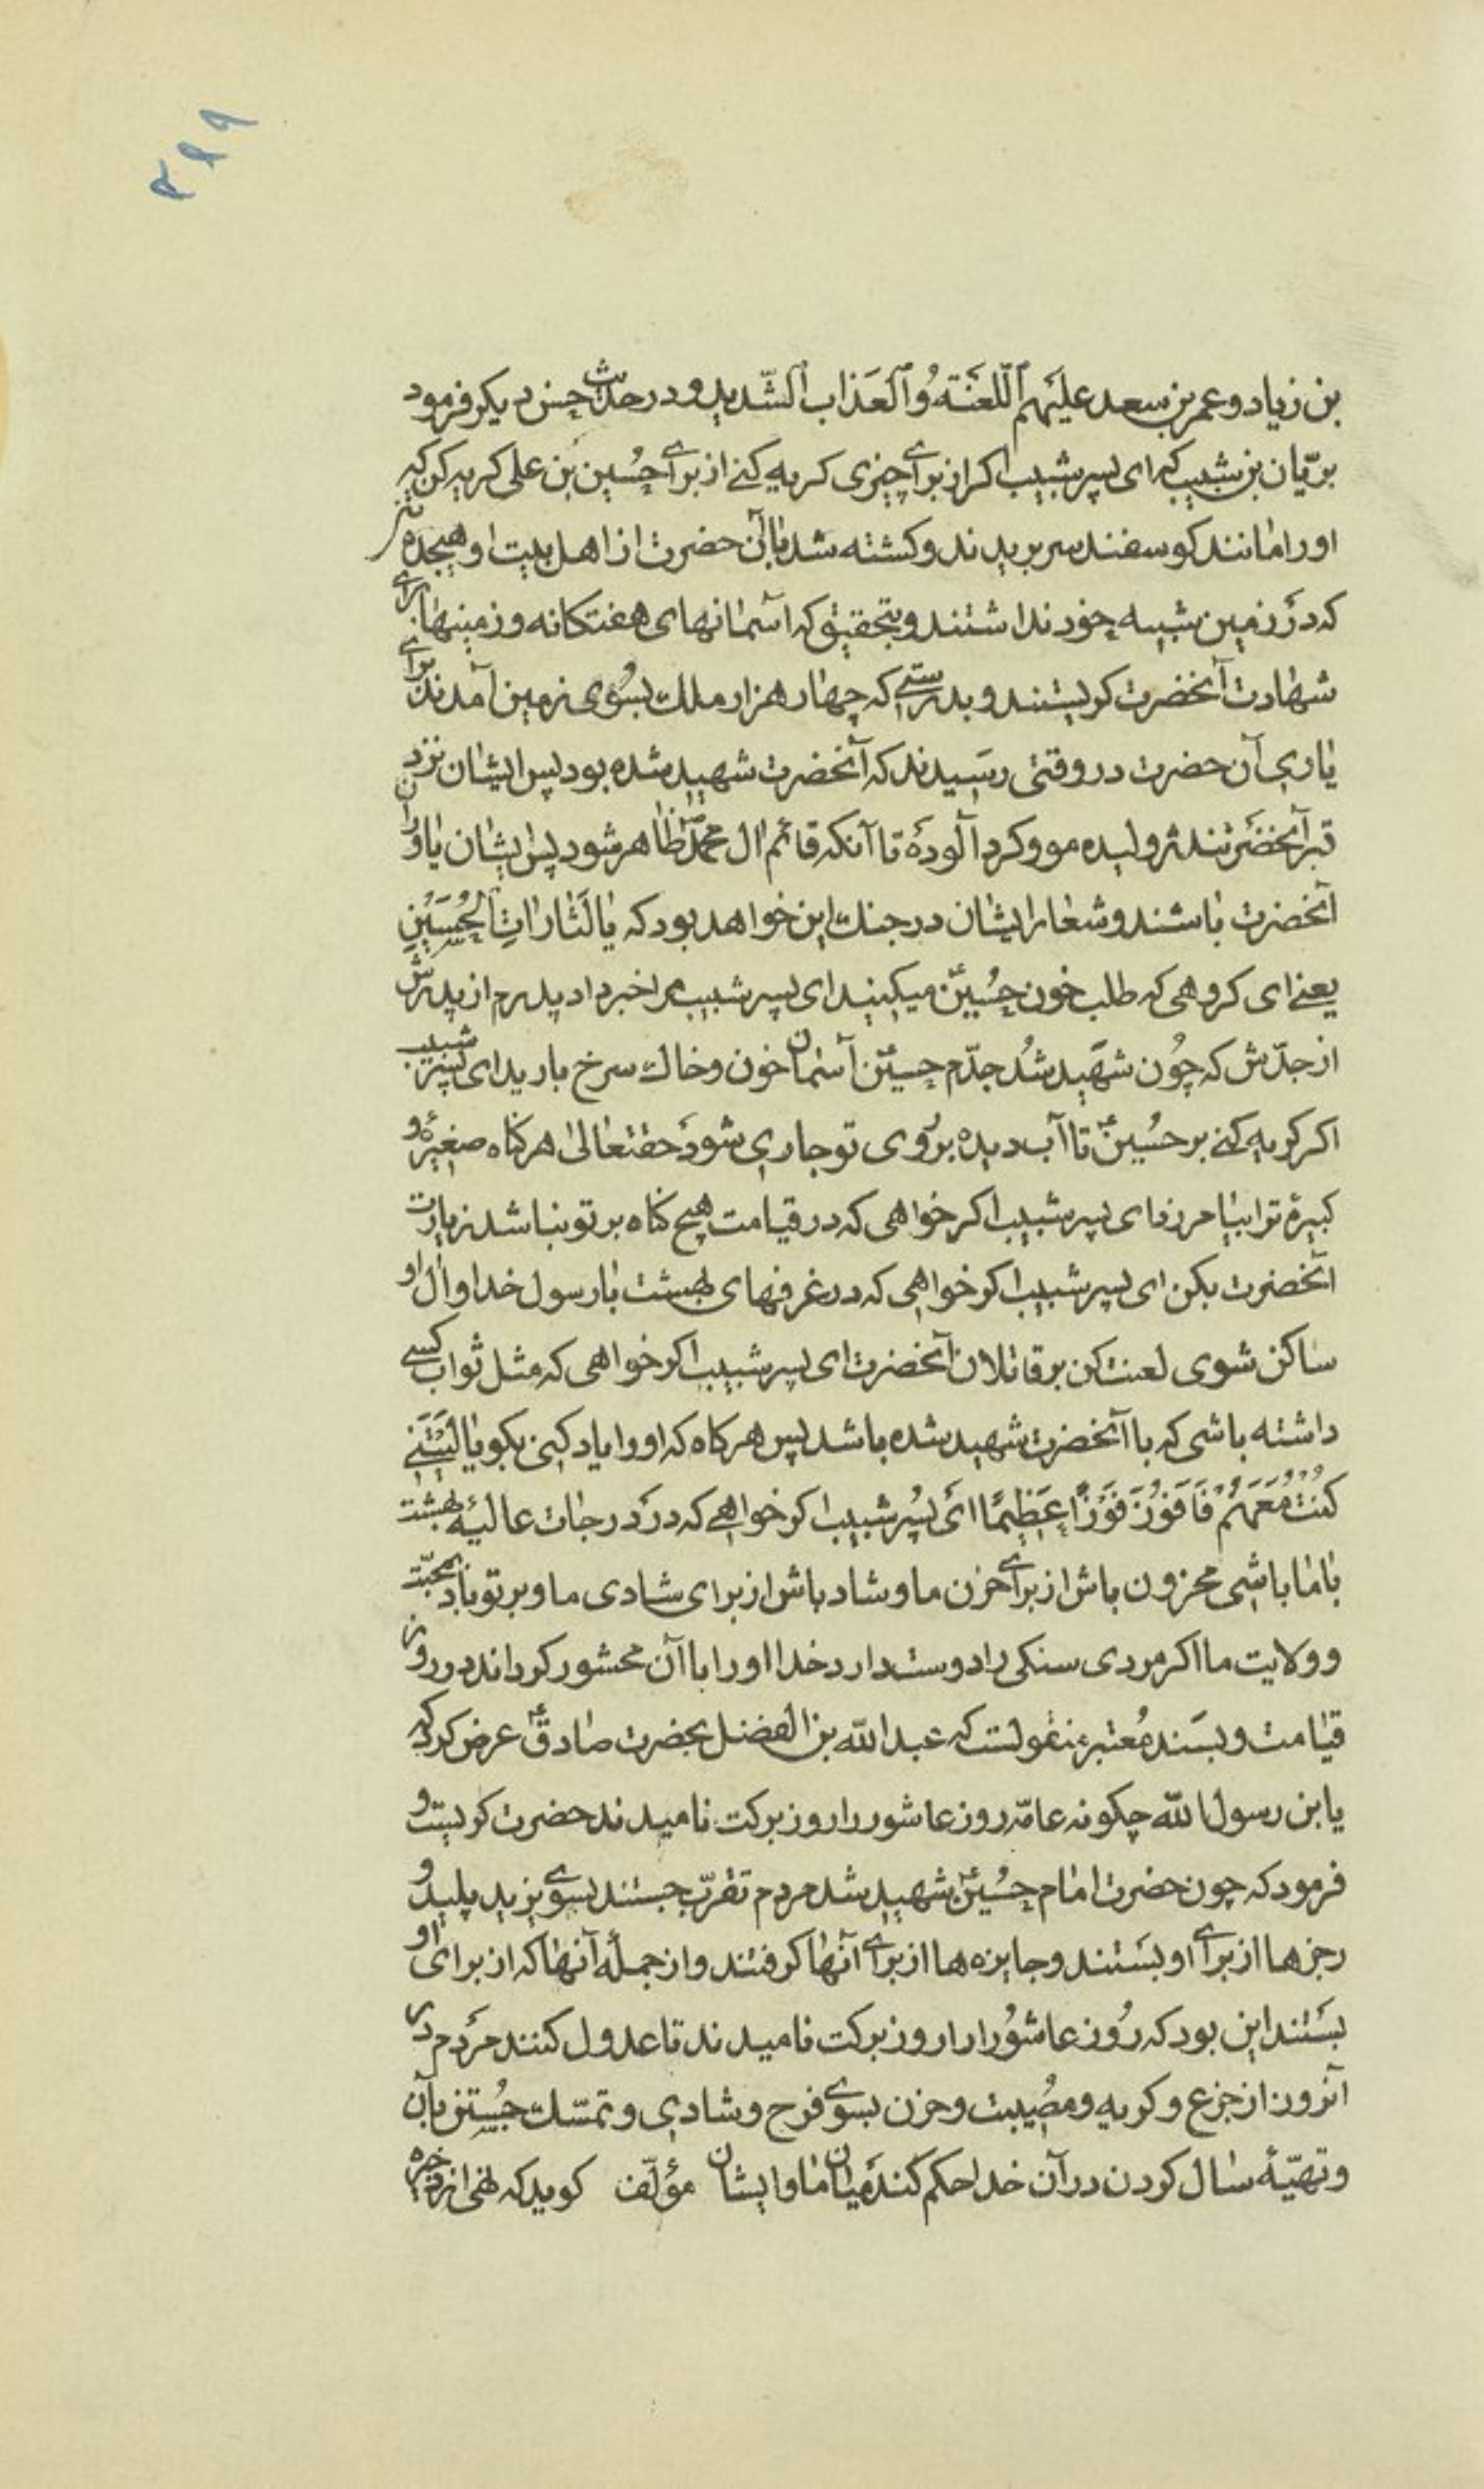 ۲۹۹
بن زیاد و عمر بن سعد علیهم اللّعنة و العذاب الشّدید و در حدیث حسن دیکر فرمود
بریّان بن شبیب که ای پسر شبیب اکر از برای چیزی کریه کنی از برای حسین بن علی کریه کن که
او را مانند کوسفند سر بریدند و کشته شد با آن حضرت از اهل بیت او هیجده نفر
که در زمین شبیه خود نداشتند و بتحقیق که آسمانهای هفتکانه و زمینها برای
شهادت آنحضرت کریستند و بدرستی که چهار هزار ملک بسوی زمین آمدند برای
یاری آن حضرت در وقتی رسیدند که آنحضرت شهید شده بود پس ایشان نزد
قبر آنحضرتند ژولیده مو و کرد آلوده تا آنکه قائم ال محمّد ظاهر شود پس ایشان یاوران
آنحضرت باشند و شعار ایشان در جنک این خواهد بود که یا لثارات الحسین
یعنی ای کروهی که طلب خون حسین میکنید ای پسر شبیب مرا خبر داد پدرم از پدرش
از جدّش که چون شهید شد جدّم حسین آسمان خون و خاک سرخ بارید ای پسر شبیب
اکر کریه کنی بر حسین تا آب دیده بروی تو جاری شود حقتعالی هر کناه صغیره و
کبیرۀ ترا بیامرزد ای پسر شبیب اکر خواهی که در قیامت هیچ کناه بر تو نباشد زیارت
آنحضرت بکن ای پسر شبیب اکر خواهی که در غرفهای بهشت با رسول خدا و ال او
ساکن شوی لعنت کن بر قاتلان آنحضرت ای پسر شبیب اکر خواهی که مثل ثواب کسی
داشته باشی که با آنحضرت شهید شده باشد پس هر کاه که او را یاد کنی بکو یا لیتنی
کنت معهم فافوز فوزا عظیما ای پسر شبیب اکر خواهی که در درجات عالیۀ بهشت
با ما باشی محزون باش از برای حزن ما و شاد باش از برای شادی ما و بر تو باد بمحبّت
و ولایت ما اکر مردی سنکی را دوست دارد خدا او را با آن محشور کرداند در روز
قیامت و بسند معتبر منقولست که عبد الله بن الفضل بحضرت صادق عرض کرد که
یا بن رسول الله چکونه عامّه روز عاشور را روز برکت نامیدند حضرت کریست و
فرمود که چون حضرت امام حسین شهید شد مردم تقرّب جستند بسوی یزید پلید و
رجزها از برای او بستند و جایزه ها از برای آنها کرفتند و از جملۀ آنها که از برای او
بستند این بود که روز عاشورا را روز برکت نامیدند تا عدول کنند مردم در
آنروز از جزع و کریه و مصیبت و حزن بسوی فرح و شادی و تمسّک جستن بآن
و تهیّۀ سال کردن در آن خدا حکم کند میان ما و ایشان مؤلّف کوید که نهی از ذخیره